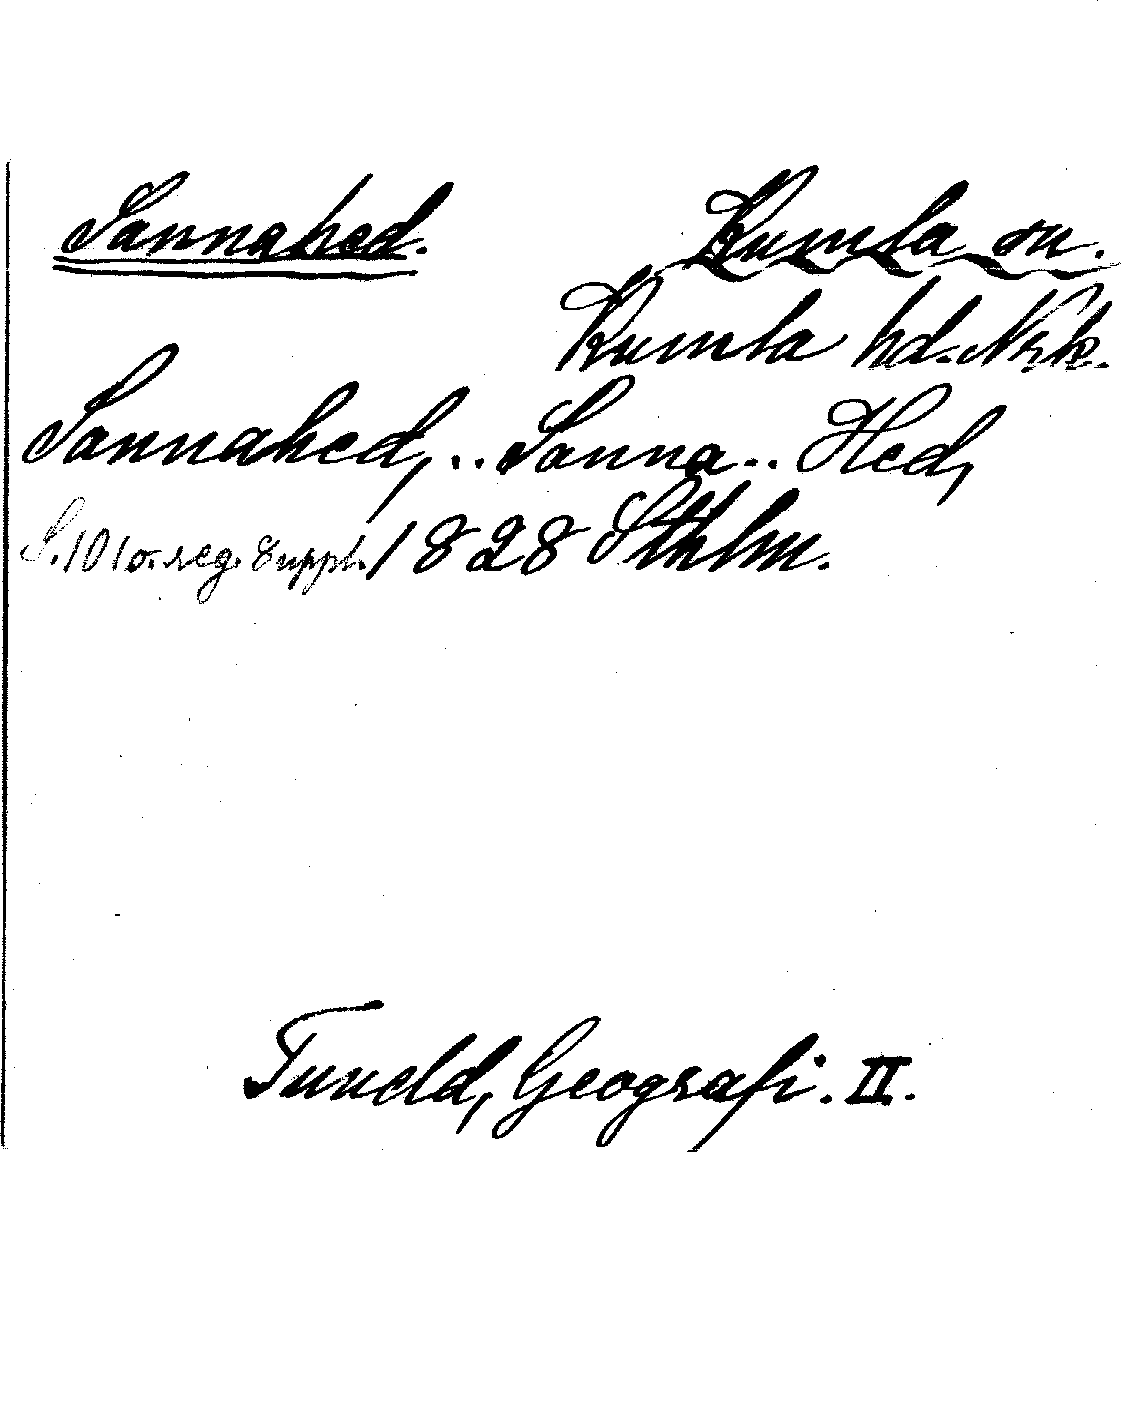 Sannahed. Kumla sn.
Kumla hd. Nrk.
Sannahed, .. Sanna .. Hed,
S. 101 o. reg. Suppl. 1828 Sthlm.
Tuneld, Geografi. II.